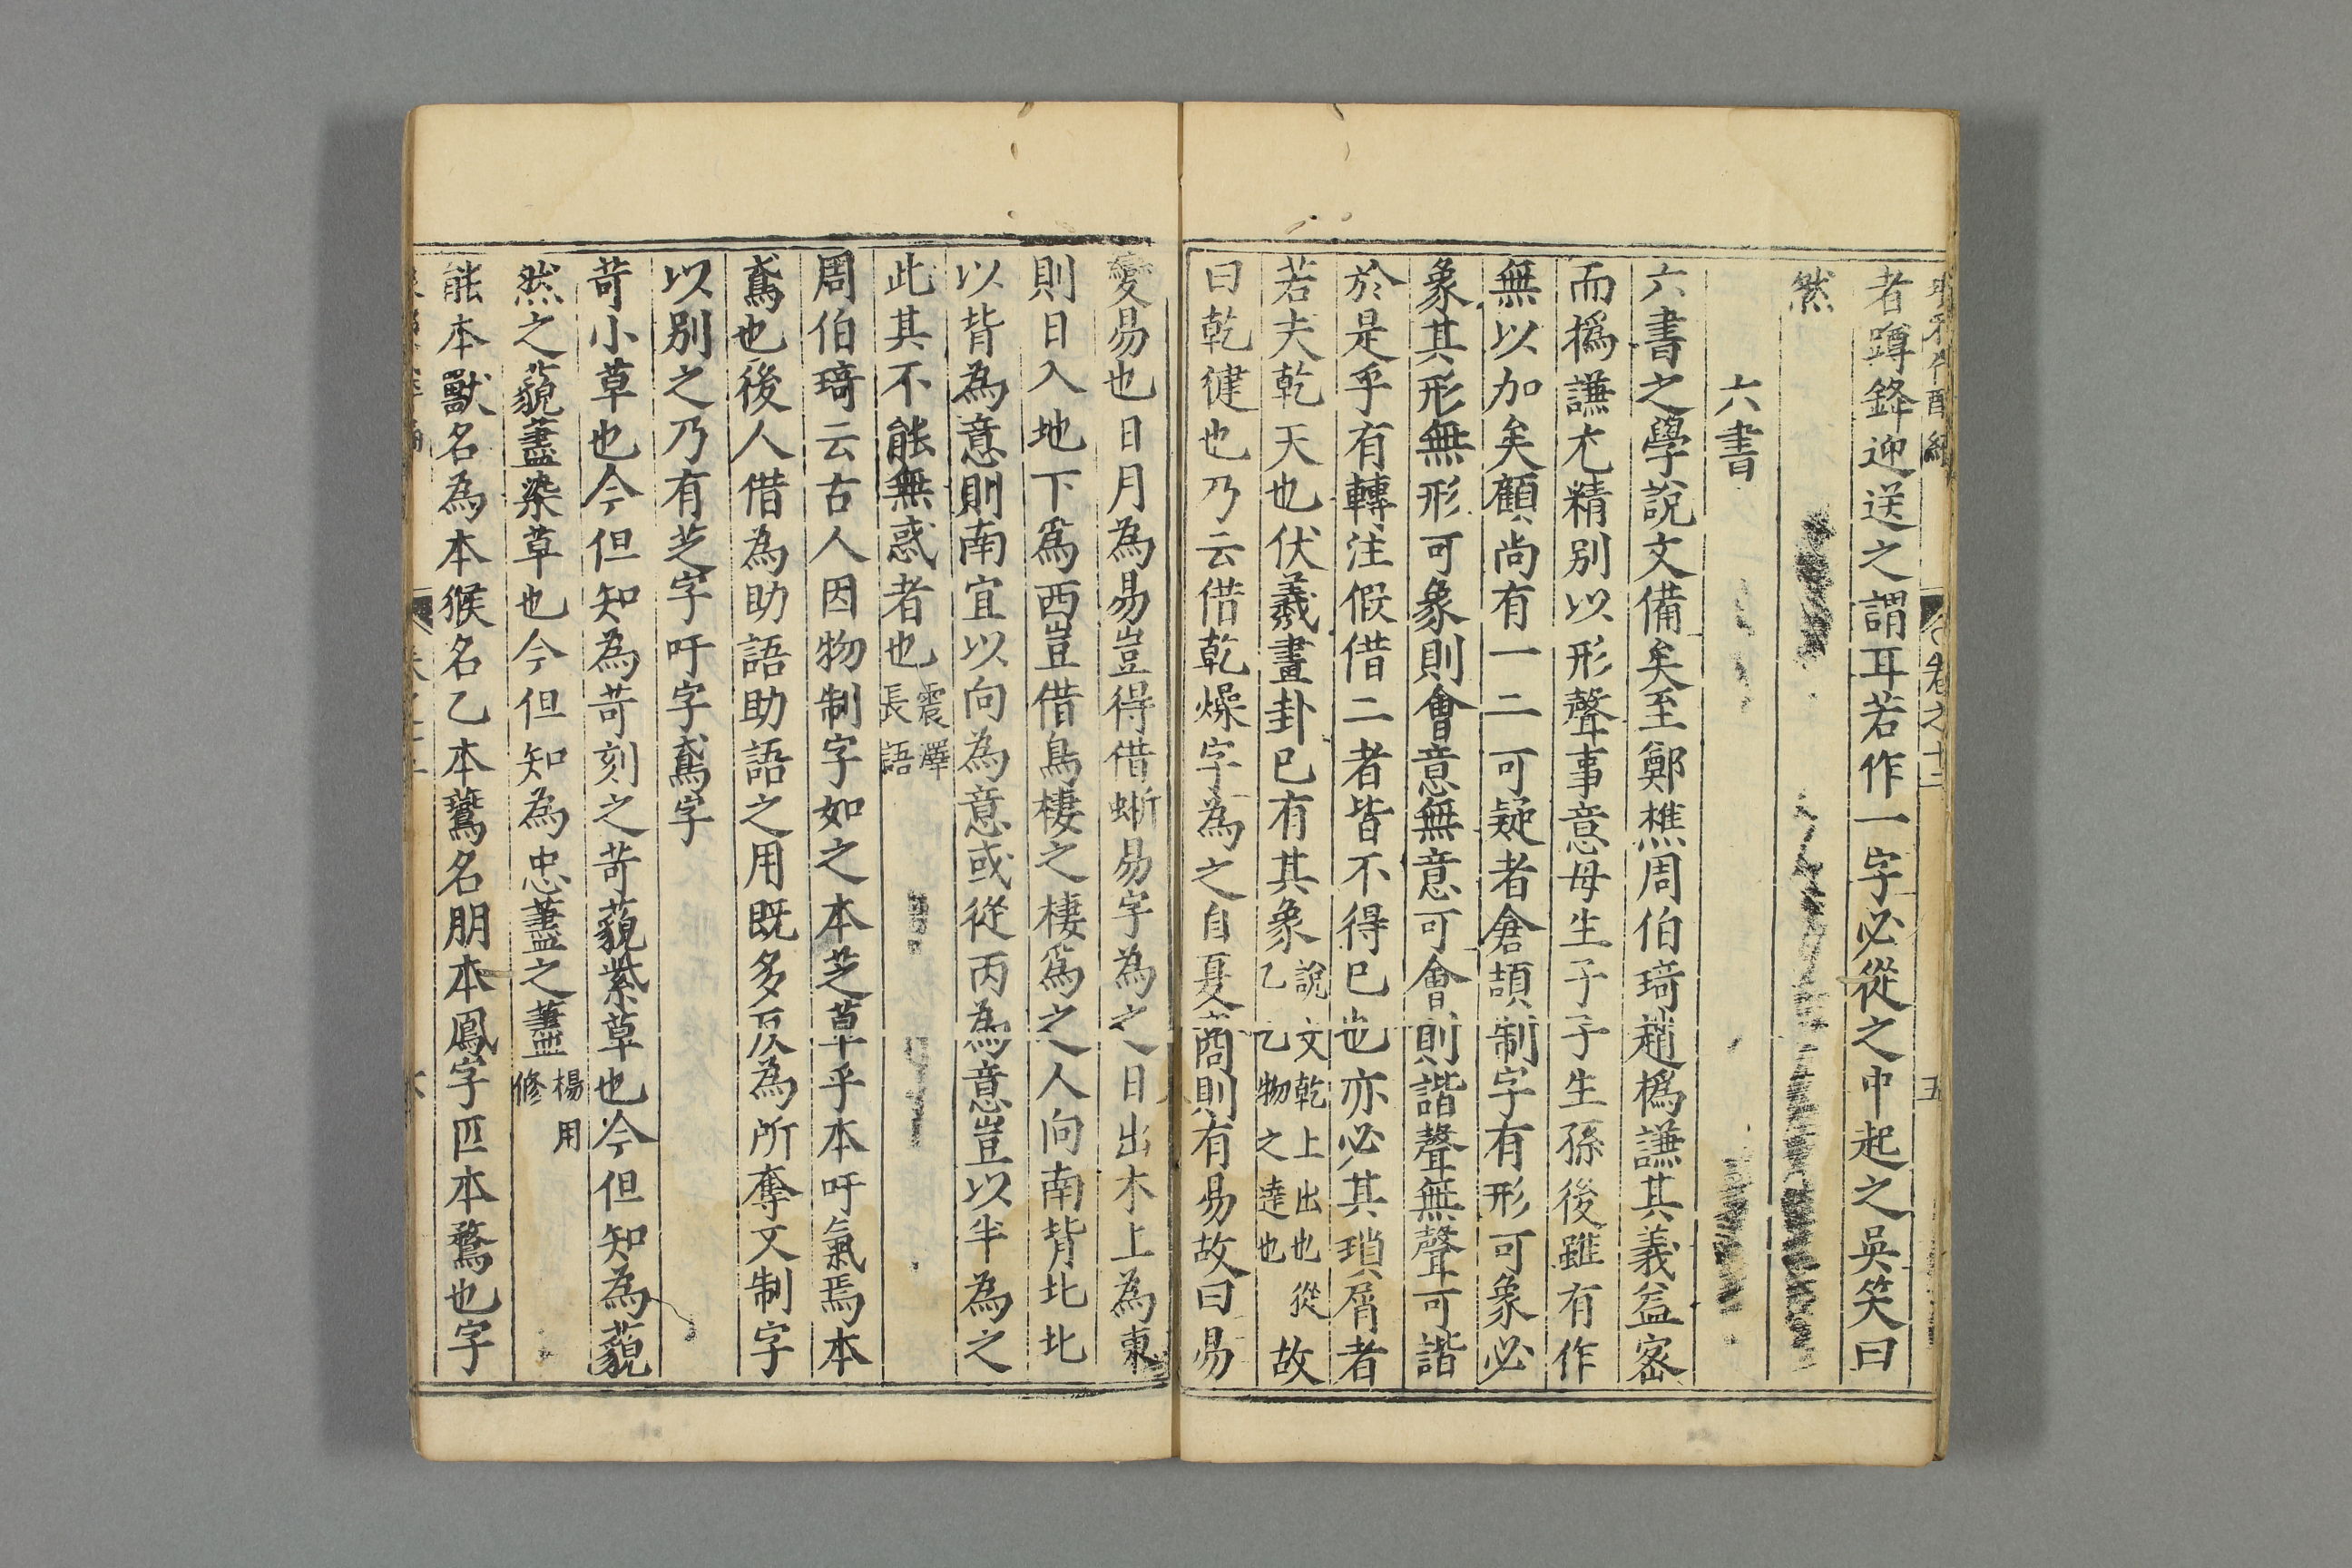 卷之十二
五
者蹲鋒迎送之謂耳若作一字必從之中起之吳笑曰
然
六書
六書之學說文備矣至鄭樵周伯琦趙撝謙其義益密
而撝謙尤精別以形聲事意母生子子生孫後雖有作
無以加矣顧尚有一二可疑者倉頡制字有形可象必
象其形無形可象則會意無意可會則諧聲無聲可諧
於是乎有轉注假借二者皆不得已也亦必其瑣屑者
若夫乾天也伏羲畫卦已有其象說文乾上出也從乙乙物之達也故
曰乾健也乃云借乾燥字為之自夏商則有易故曰易
變易也日月為易豈得借蜥易字為之日出木上為東
則日入地下爲西豈借鳥棲之棲爲之人向南背北北
以背為意則南宜以向為意或從丙為意豈以半為之
此其不能無惑者也震澤長語
周伯琦云古人因物制字如之本芝草乎本吁氣焉本
鳶也後人借為助語助語之用既多反為所奪文制字
以別之乃有芝字吁字鳶字
苛小草也今但知為苛刻之苛藐紫草也今但知為藐
然之藐藎染草也今但知為忠藎之藎楊用修
能本獸名為本猴名乙本鷖名朋本鳳字匹本鶩也字